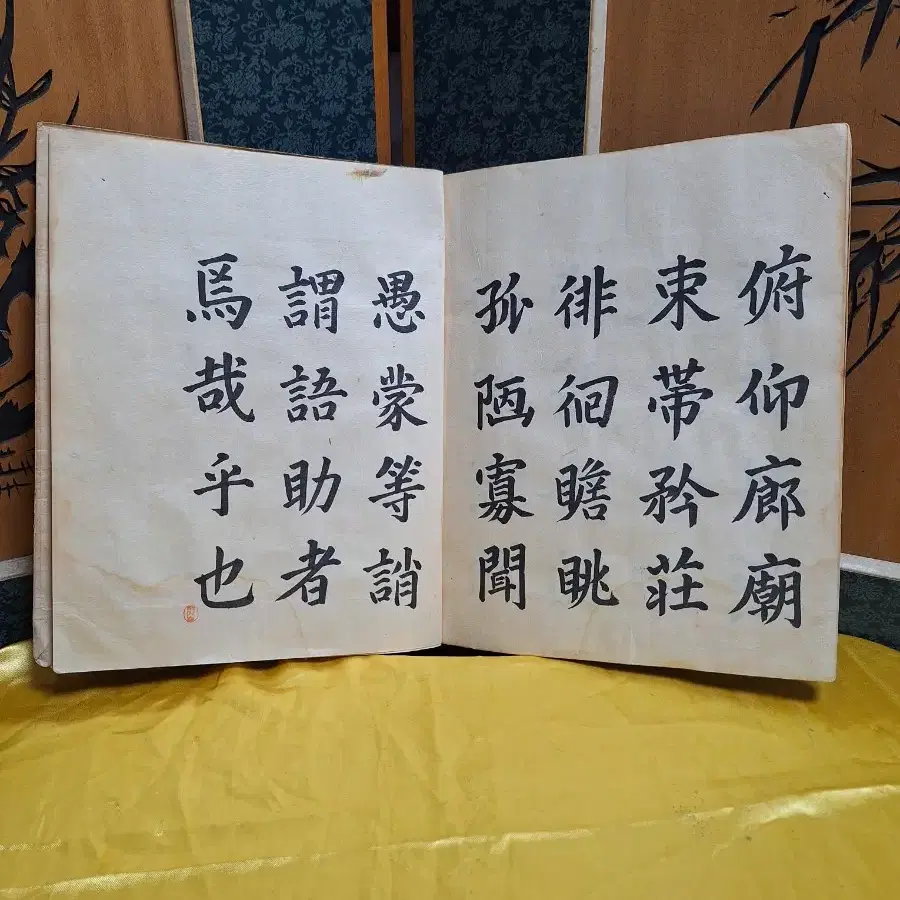 俯仰廊廟
束帶矜莊
徘徊瞻眺
孤陋寡聞
愚蒙等誚
謂語助者
焉哉乎也